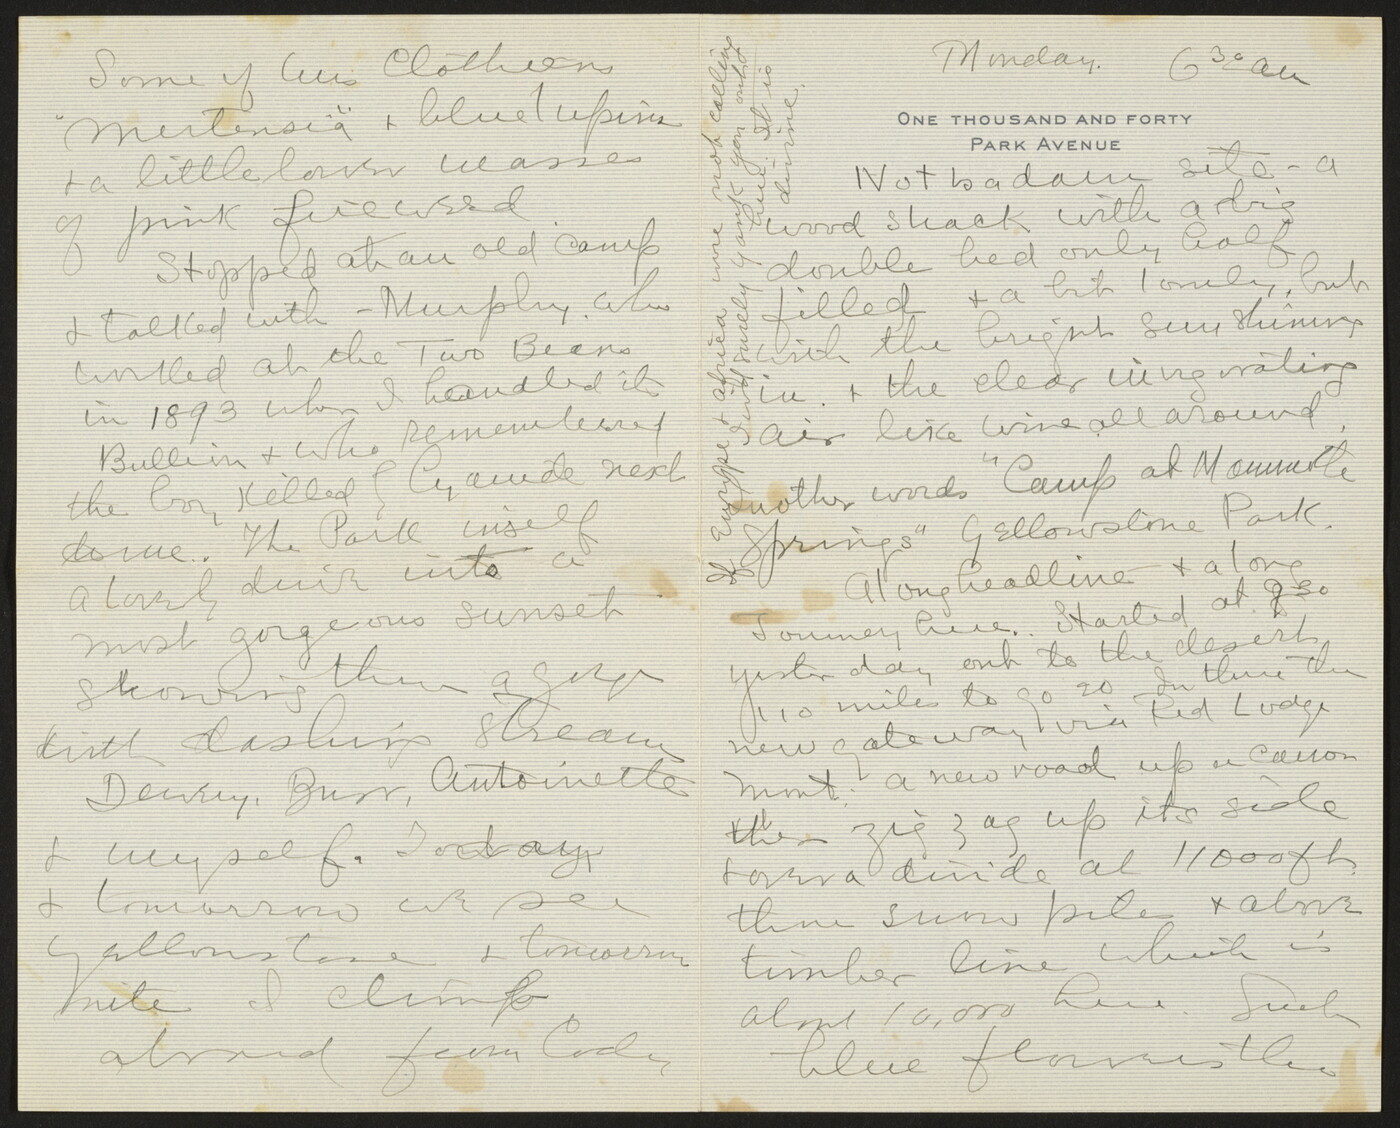 Monday. 6 30 am
ONE THOUSAND AND FORTY
PARK AVENUE
Not bad am site - a
wood shack with a big
double bed only half
filled + a bit lonely, but
with the bright sun shining
in. + the clear invigorating
air like wine all around.
nother words "Camp at Mammoth
Springs" Yellowstone Park.
A long headline + a long
Journey here. Started at 9 30
yester day out to the desert
110 miles to go 20 In there the
new gateway via Red Lodge
Mont. a new road up a canon
then zig zag up its side
+ over a divide at 11000 ft.
thru snow piles + above
timber line which is
about 10,000 here. Such
blue flowers the
Some of this
"Mertensia" + blue lupins
+ a little lower masses
of pink fireweed.
Stopped at an old camp
+ talked with - Murphy. who
worked at the Two Beans
in 1893 when I handled its
Bullion + who remembered
the boy killed by Cyanide next
to me. The Park itself
a lovely drive into a
most gorgeous sunset
showing thru a gorge
with dashing stream
Dewey, Burr, Antoinette
+ myself. Today,
+ tomorrow we see
Yellowstone + tomorrow
nite I climb
aboard from Cody
If Europe + Africa were not calling
surely yank you out
here. It is
divine.